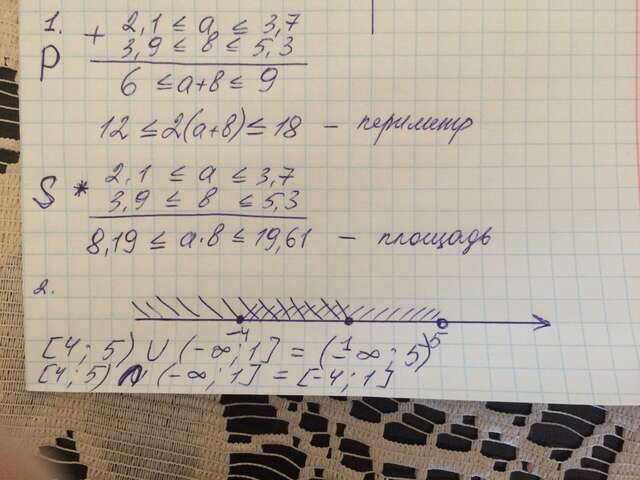 1.
P + 2,1 ≤ a ≤ 3,7
3,9 ≤ в ≤ 5,3
6 ≤ a+в ≤ 9
12 ≤ 2(a+в) ≤ 18 – периметр
S * 2,1 ≤ a ≤ 3,7
3,9 ≤ в ≤ 5,3
8,19 ≤ a·в ≤ 19,61 – площадь
2.
-4 1 5
[4; 5) ∪ (-∞; 1] = (-∞; 5)
[4; 5) ∩ (-∞; 1] = [-4; 1]